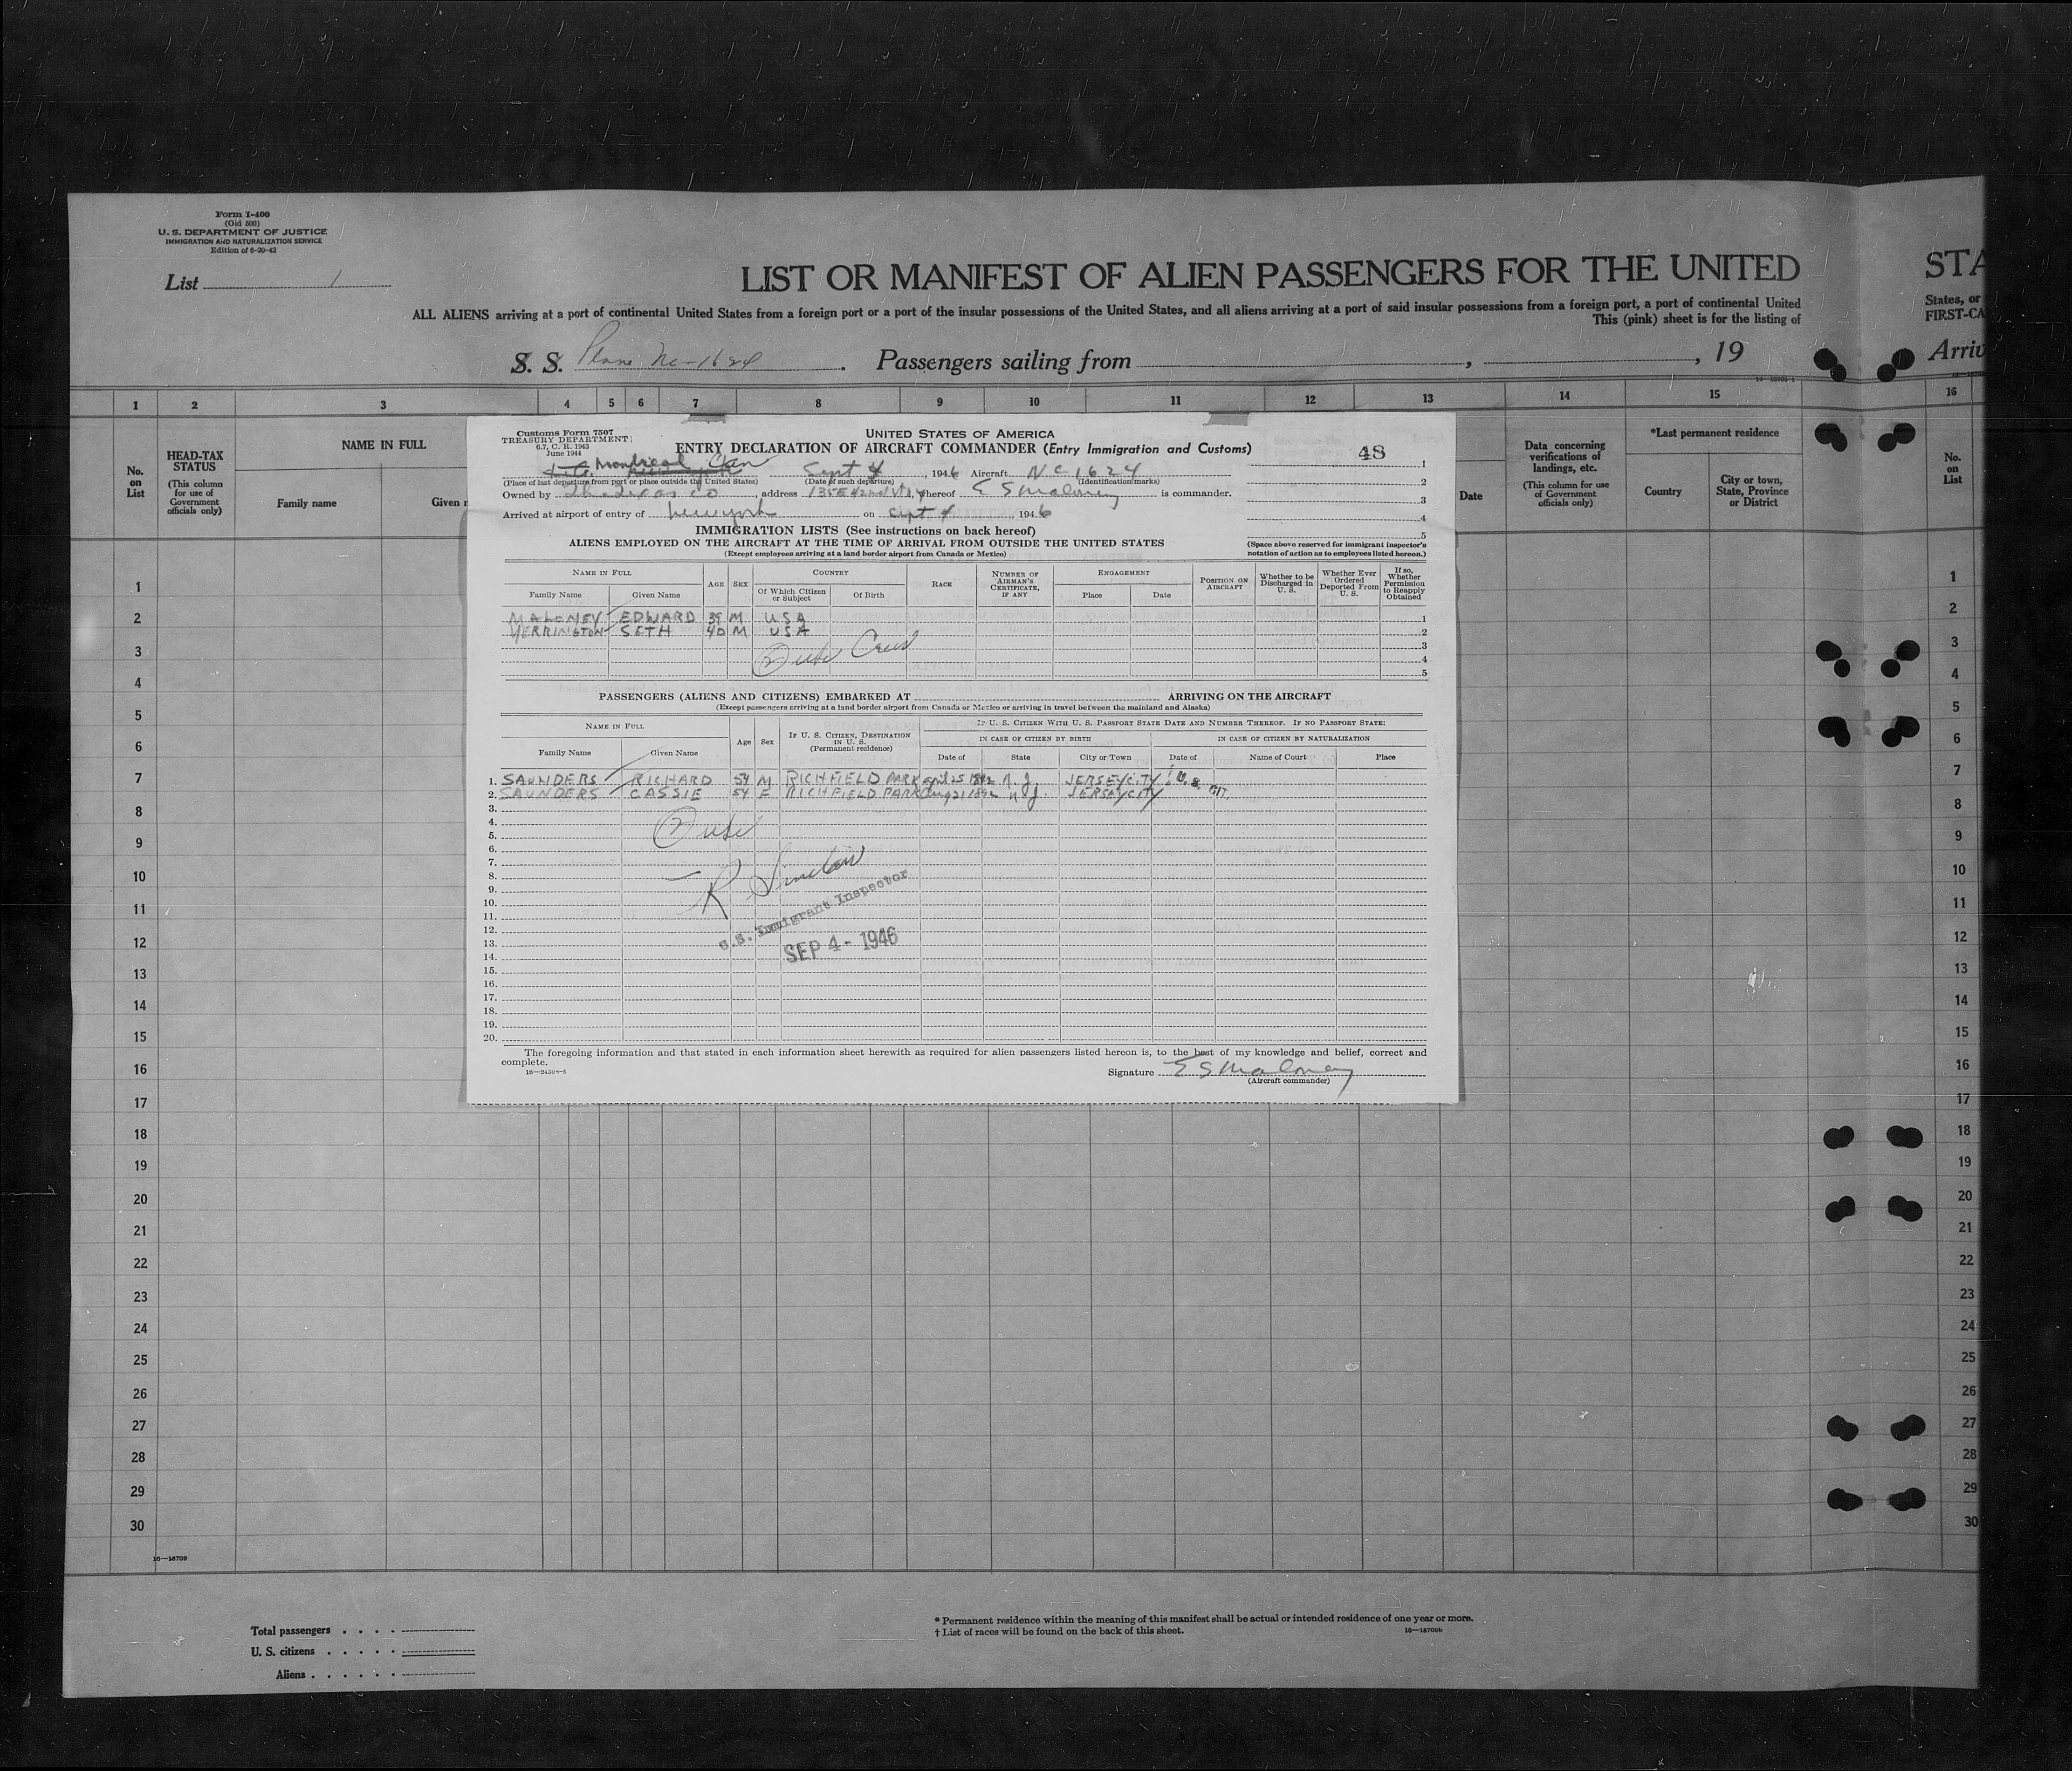 Form I-400
(Old 500)
U. S. DEPARTMENT OF JUSTICE
IMMIGRATION AND NATURALIZATION SERVICE
Edition of 6-20-42
List 1
LIST OR MANIFEST OF ALIEN PASSENGERS FOR THE UNITED
STA
ALL ALIENS arriving at a port of continental United States from a foreign port or a port of the insular possessions of the United States, and all aliens arriving at a port of said insular possessions from a foreign port, a port of continental United
States, or
This (pink) sheet is for the listing of
FIRST-CA
S. S. Plane Nc-1624. Passengers sailing from , , 19
Arriv
1 2 3 4 5 6 7 8 9 10 11 12 13 14 15 16
No. on List
HEAD-TAX STATUS
(This column for use of Government officials only)
NAME IN FULL
Family name
Given n
Date
Data concerning verifications of landings, etc.
(This column for use of Government officials only)
*Last permanent residence
Country
City or town, State, Province or District
No. on List
Customs Form 7507
TREASURY DEPARTMENT
6.7, C. R. 1943
June 1944
UNITED STATES OF AMERICA
ENTRY DECLARATION OF AIRCRAFT COMMANDER (Entry Immigration and Customs)
48
Montreal Can Sept 4, 1946 Aircraft NC 1624
(Place of last departure from port or place outside the United States) (Date of such departure) (Identification marks)
Owned by The Texas Co, address 135 E 42nd St N.Y. thereof E S Maloney is commander.
Arrived at airport of entry of New York on Sept 4, 1946
1
2
3
4
5
IMMIGRATION LISTS (See instructions on back hereof)
ALIENS EMPLOYED ON THE AIRCRAFT AT THE TIME OF ARRIVAL FROM OUTSIDE THE UNITED STATES
(Except employees arriving at a land border airport from Canada or Mexico)
(Space above reserved for immigrant inspector's notation of action as to employees listed hereon.)
NAME IN FULL
Family Name Given Name
AGE SEX
COUNTRY
Of Which Citizen or Subject Of Birth
RACE
NUMBER OF AIRMAN'S CERTIFICATE, IF ANY
ENGAGEMENT
Place Date
POSITION ON AIRCRAFT
Whether to be Discharged in U. S.
Whether Ever Ordered Deported From U. S.
If so, Whether Permission to Reapply Obtained
MALONEY EDWARD 39 M USA 1
YERRINGTON SETH 40 M USA 2
3
4
5
PASSENGERS (ALIENS AND CITIZENS) EMBARKED AT ARRIVING ON THE AIRCRAFT
(Except passengers arriving at a land border airport from Canada or Mexico or arriving in travel between the mainland and Alaska)
NAME IN FULL
Family Name Given Name
Age Sex
IF U. S. CITIZEN, DESTINATION IN U. S.
(Permanent residence)
IF U. S. CITIZEN WITH U. S. PASSPORT STATE DATE AND NUMBER THEREOF. IF NO PASSPORT STATE:
IN CASE OF CITIZEN BY BIRTH IN CASE OF CITIZEN BY NATURALIZATION
Date of State City or Town Date of Name of Court Place
1. SAUNDERS RICHARD 54 M RICHFIELD PARK April 25 1892 N. J. JERSEY CITY U. S.
2. SAUNDERS CASSIE 54 F RICHFIELD PARK Aug 21 1892 N J. JERSEY CITY CIT.
3.
4.
5.
6.
7.
8.
9.
10.
11.
12.
13.
14.
15.
16.
17.
18.
19.
20.
R Sinclair
U.S. Immigrant Inspector
SEP 4 - 1946
The foregoing information and that stated in each information sheet herewith as required for alien passengers listed hereon is, to the best of my knowledge and belief, correct and
complete.
Signature E S Maloney
(Aircraft commander)
1
2
3
4
5
6
7
8
9
10
11
12
13
14
15
16
17
18
19
20
21
22
23
24
25
26
27
28
29
30
1
2
3
4
5
6
7
8
9
10
11
12
13
14
15
16
17
18
19
20
21
22
23
24
25
26
27
28
29
30
16—18709
Total passengers . . . .
U. S. citizens . . . . .
Aliens . . . . . .
* Permanent residence within the meaning of this manifest shall be actual or intended residence of one year or more.
† List of races will be found on the back of this sheet.
16—18709b